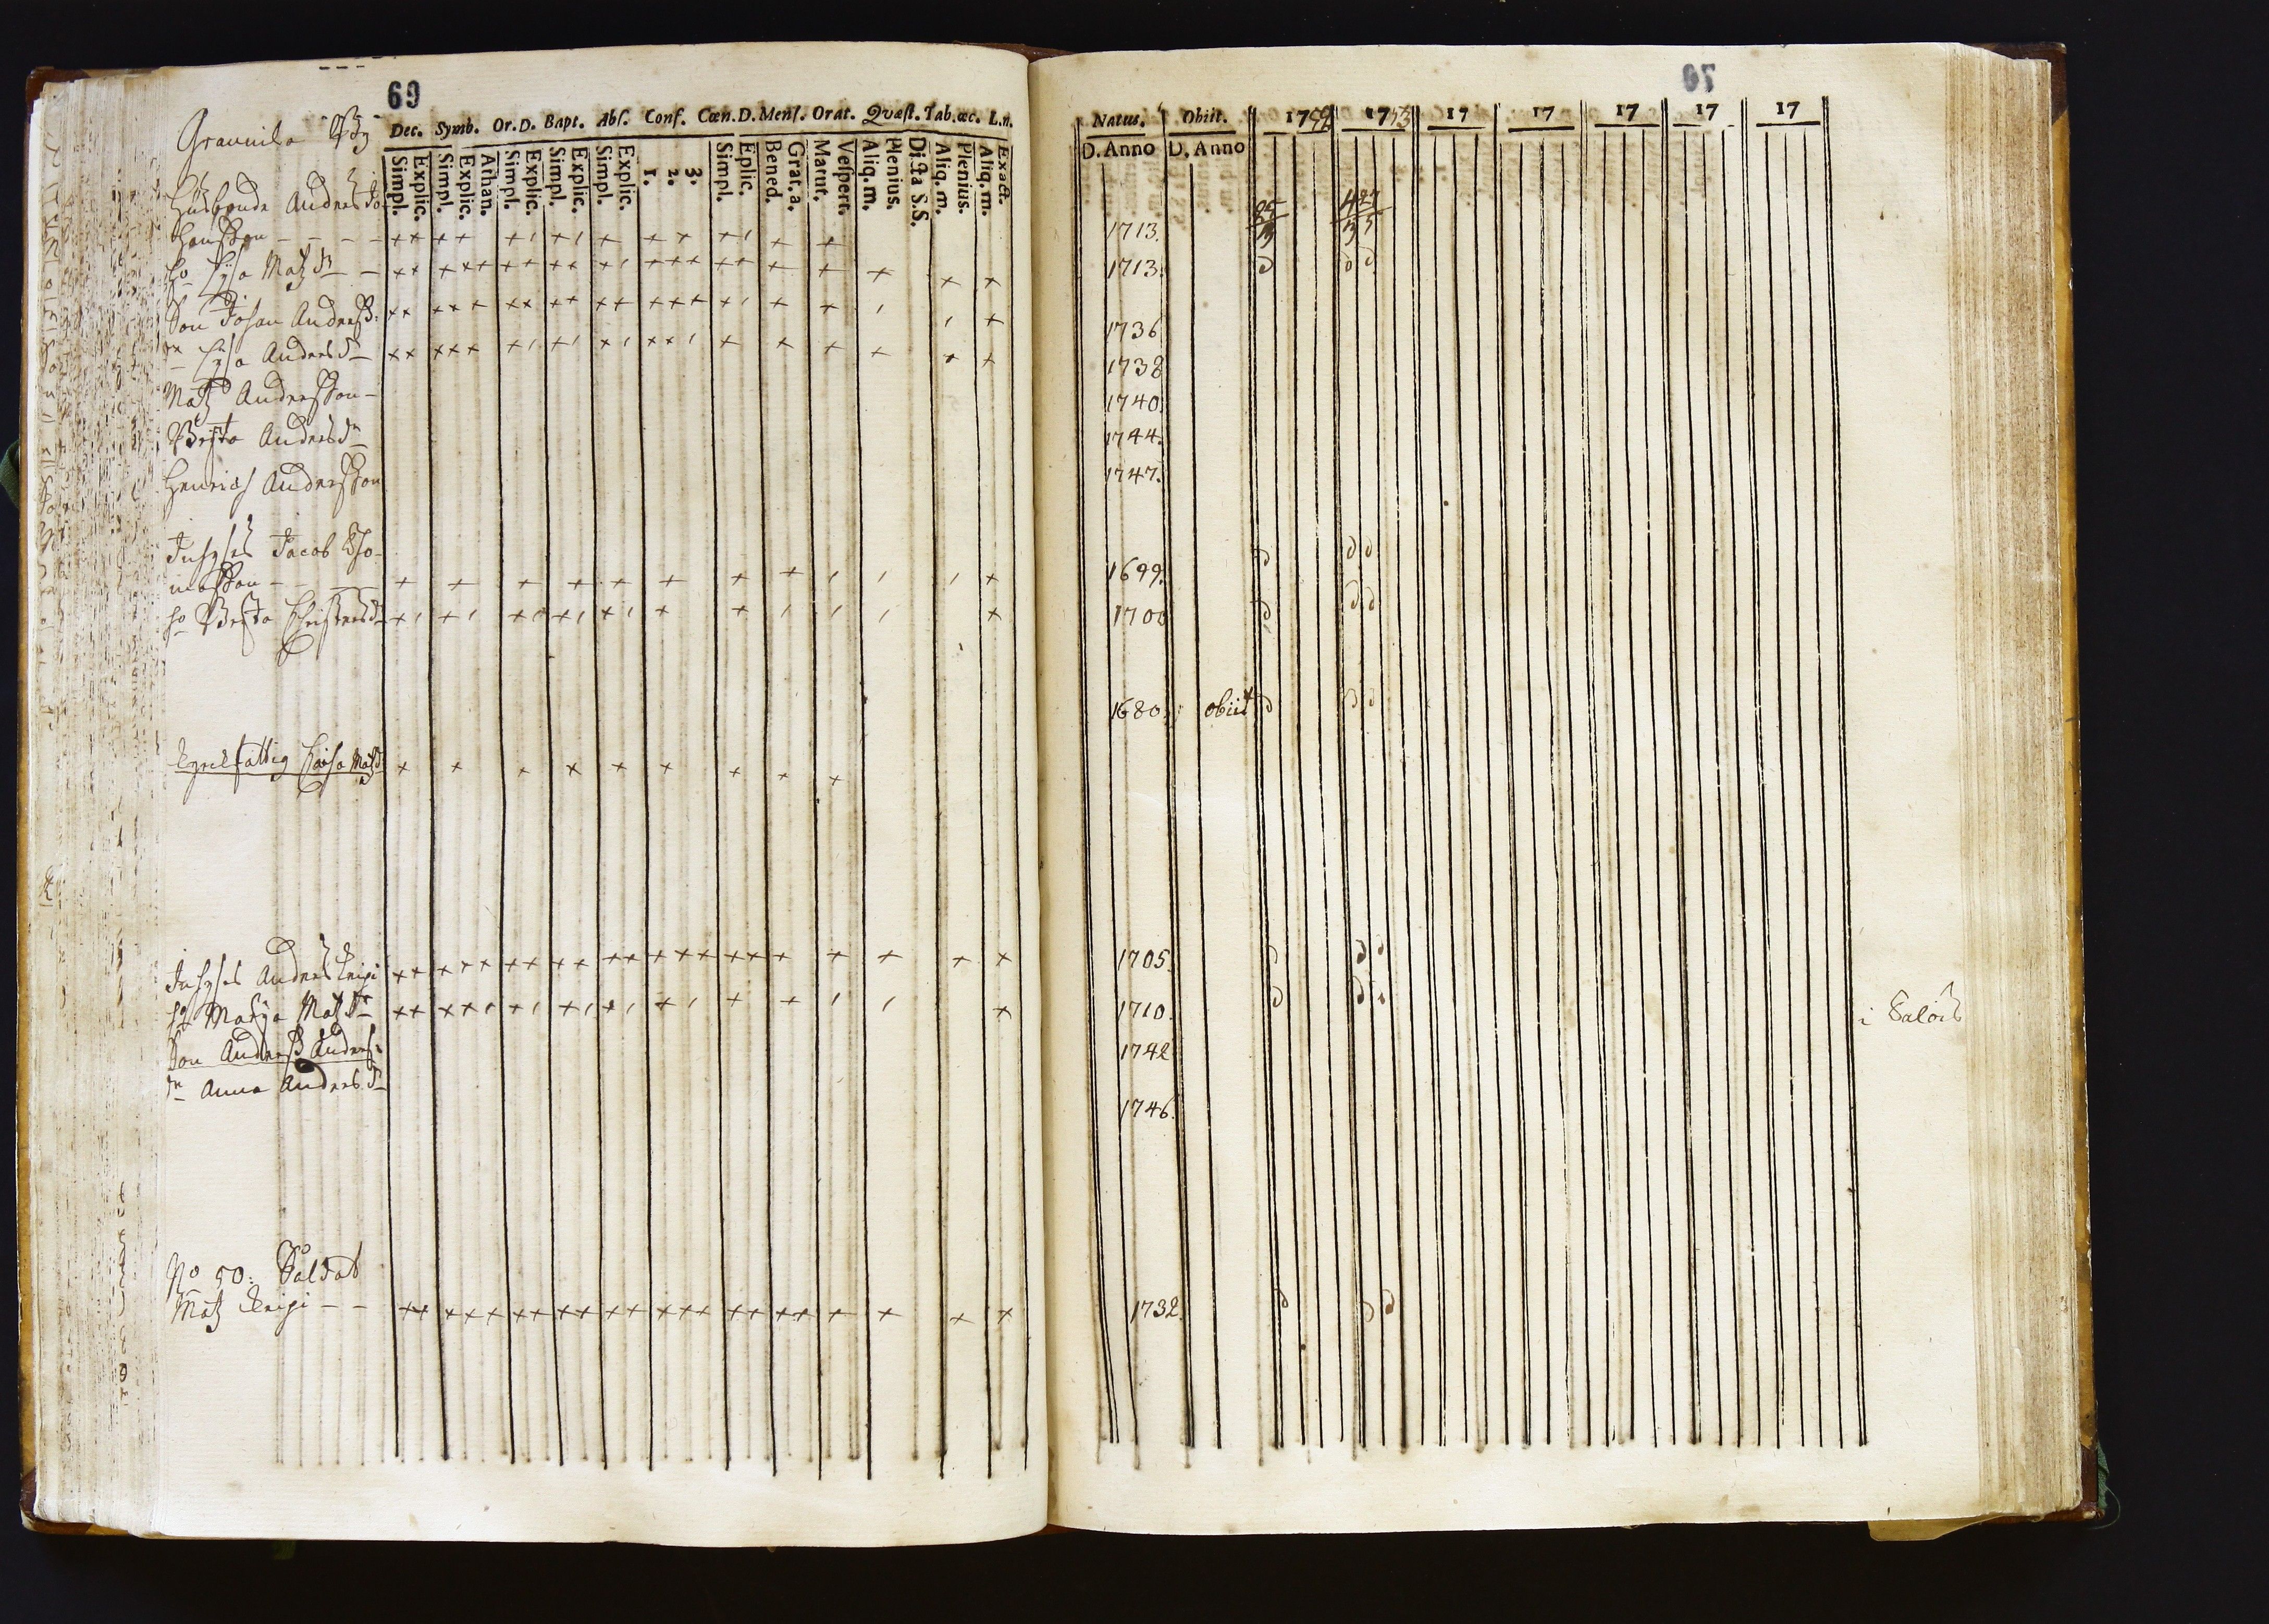 69
Dec. Symb. Or. D. Bapt. Abs. Conf. Cœn. D. Mens. Orat. Quæst. Tab. œc. L. n.
Simpl. Explic. Simpl. Explic. Athan. Simpl. Explic. Simpl. Explic. Simpl. Explic. 1. 2. 3. Simpl. Eplic. Bened. Grat. a. Matut. Vespert. Aliq. m. Plenius. Dicta S.S. Aliq. m. Plenius. Aliq. m. Exact.
Grannila By
Husbonde Anders Jo-
hansson - - - -
ho Lisa Matzdr
Son Johan Anderss:
dr Lisa Andersdr
Matz Andersson
Brita Andersdr
Henrich Andersson
Inhyses Jacob Tho-
masson
ho Brita Christersdr
Matzdr
Inhyses Anders Knipi
ho Maria Matzdr
Son Anderss Anders:
dr Anna Andersdr
No 50: Soldat
Matz Knipi - -
70
Natus. Obiit. 1752 1753 17 17 17 17 17
D. Anno D. Anno
1713.
1713.
1736
1738
1740.
1744.
1747.
1699.
1700
1680. obiit
1705.
1710.
i Salois
1742
1746.
1732.